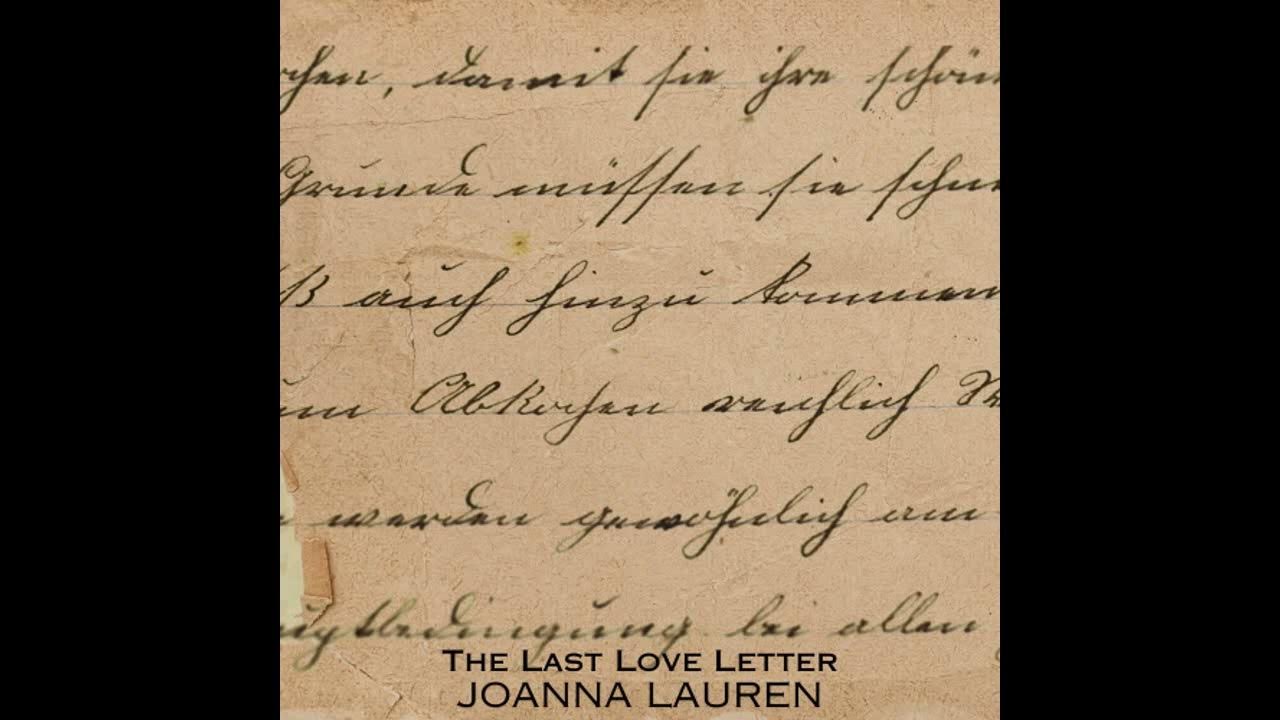 chen, damit sie ihre schön
Grunde müssen sie schn
ß auch hinzu kommen
um Abkochen reichlich
werden gewöhnlich am
uptbedingung bei allen
The Last Love Letter
JOANNA LAUREN